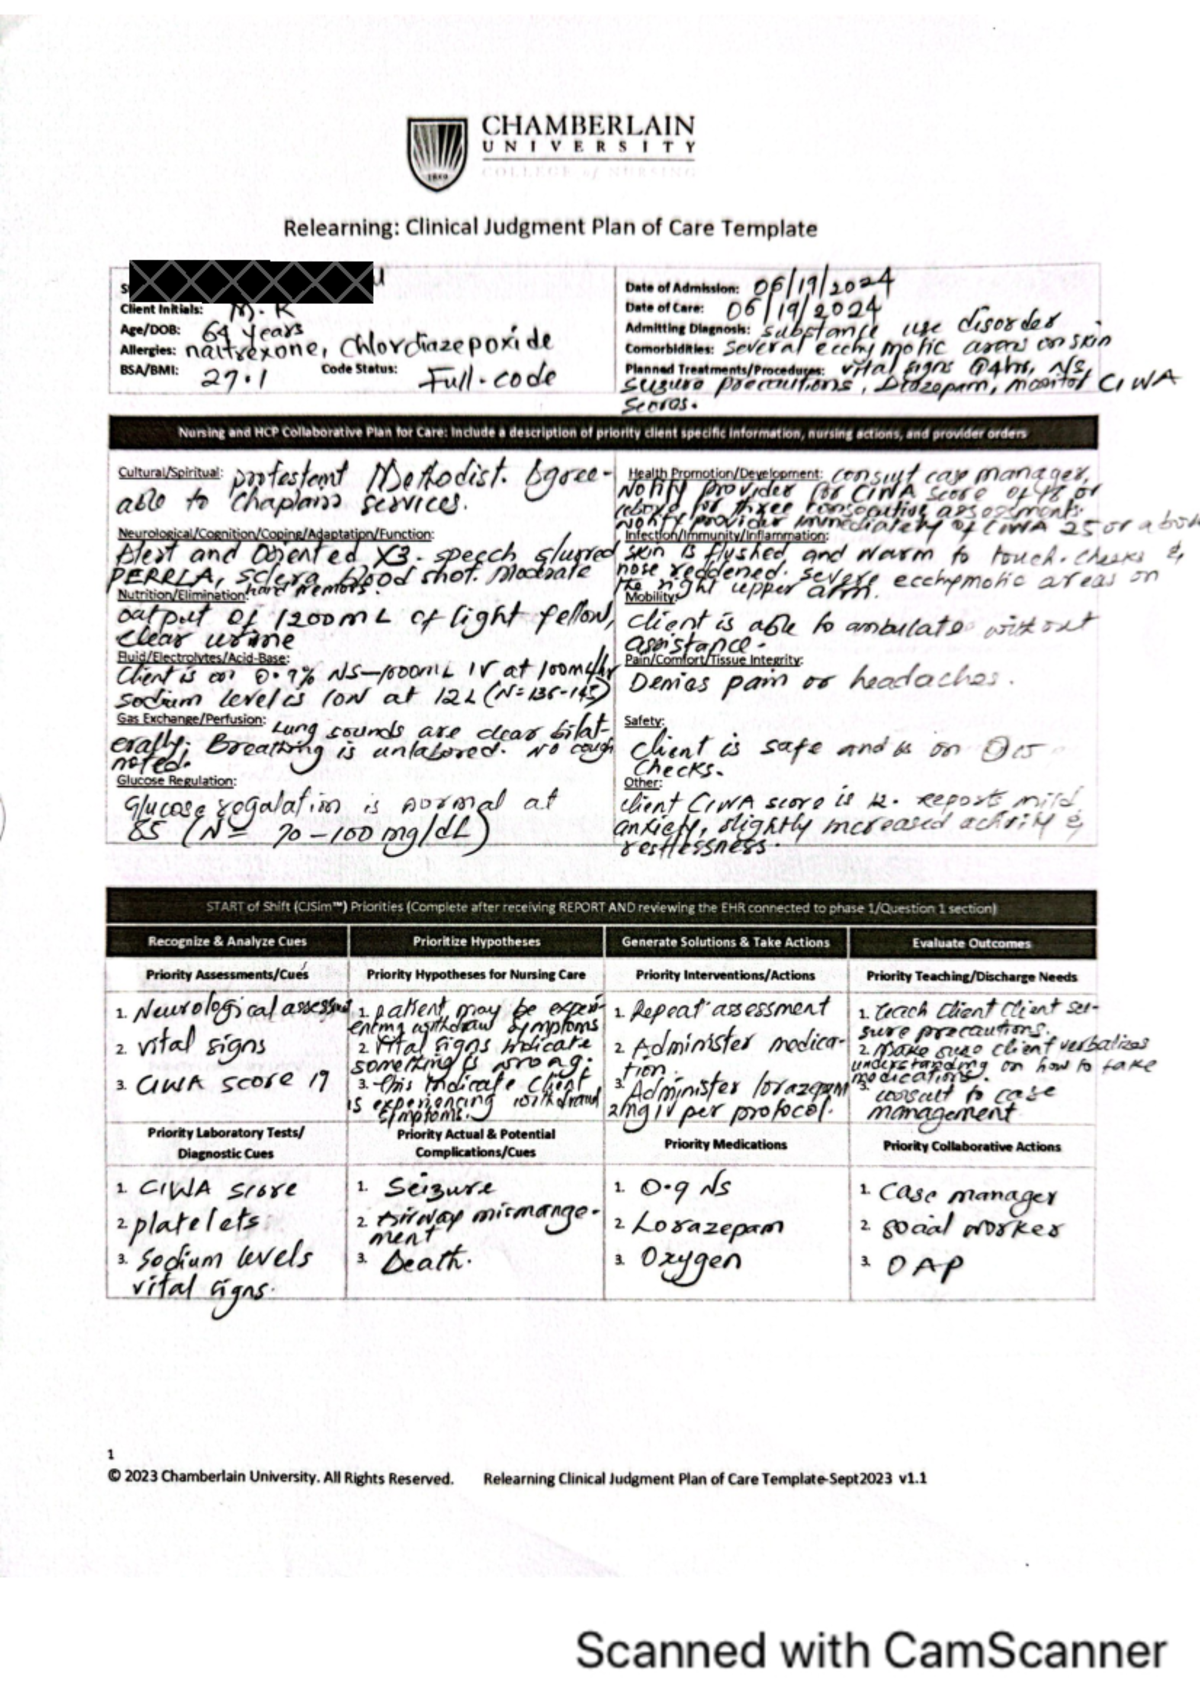 CHAMBERLAIN
UNIVERSITY
COLLEGE of NURSING
Relearning: Clinical Judgment Plan of Care Template
Client Initials: M. K
Age/DOB: 64 years
Allergies: naltrexone, Chlordiazepoxide
BSA/BMI: 27.1 Code Status: Full-code
Date of Admission: 06/19/2024
Date of Care: 06/19/2024
Admitting Diagnosis: substance use disorder
Comorbidities: Several ecchymotic areas on skin
Planned Treatments/Procedures: vital signs Q4hrs, N/S,
precautions, monitor CIWA
Scores.
Nursing and HCP Collaborative Plan for Care: Include a description of priority client specific information, nursing actions, and provider orders
Cultural/Spiritual: protestant Methodist. Agree-
able to Chaplains services.
Neurological/Cognition/Coping/Adaptation/Function:
Alert and Oriented X3. speech slurred
PERRLA, sclera blood shot. Moderate
hand tremors.
Nutrition/Elimination:
output of 1200mL of light yellow,
clear urine
Fluid/Electrolytes/Acid-Base:
Client is on 0.9% NS-1000mL IV at 100mL/hr
Sodium level is low at (N=136-145)
Gas Exchange/Perfusion: Lung sounds are clear bilat-
erally. Breathing is unlabored. No cough
noted.
Glucose Regulation:
Glucose regulation is normal at
85 (N= 70-100mg/dL)
Health Promotion/Development: consult case manager,
Notify provider for CIWA score of 18 or
above for three consecutive assessments.
Notify provider immediately if CIWA 25 or above
Infection/Immunity/Inflammation:
skin is flushed and warm to touch. cheeks &
nose reddened. severe ecchymotic areas on
the right upper arm.
Mobility:
client is able to ambulate without
assistance.
Pain/Comfort/Tissue Integrity:
Denies pain or headaches.
Safety:
client is safe and is on Q15
checks.
Other:
client CIWA score is 12. reports mild
anxiety, slightly increased activity &
restlessness.
START of Shift (CJSim™) Priorities (Complete after receiving REPORT AND reviewing the EHR connected to phase 1/Question 1 section)
Recognize & Analyze Cues
Prioritize Hypotheses
Generate Solutions & Take Actions
Evaluate Outcomes
Priority Assessments/Cues
Priority Hypotheses for Nursing Care
Priority Interventions/Actions
Priority Teaching/Discharge Needs
1. Neurological
2. vital signs
3. CIWA score 19
1. patient may be experi-
encing withdraw symptoms
2. Vital signs indicate
something is wrong.
3. This indicate client
is experiencing withdrawal
symptoms.
1. Repeat assessment
2. Administer medica-
tion.
3. Administer lorazepam
2mg IV per protocol.
1. teach Client Client sei-
sure precautions.
2. Make sure client verbalizes
understanding on how to take
medications.
3. consult to case
management
Priority Laboratory Tests/
Diagnostic Cues
Priority Actual & Potential
Complications/Cues
Priority Medications
Priority Collaborative Actions
1. CIWA score
2. platelets
3. Sodium levels
vital signs.
1. Seizure
2. Airway mismange-
ment
3. Death.
1. 0.9 NS
2. Lorazepam
3. Oxygen
1. Case manager
2. social worker
3. OAP
1
© 2023 Chamberlain University. All Rights Reserved. Relearning Clinical Judgment Plan of Care Template-Sept2023 v1.1
Scanned with CamScanner